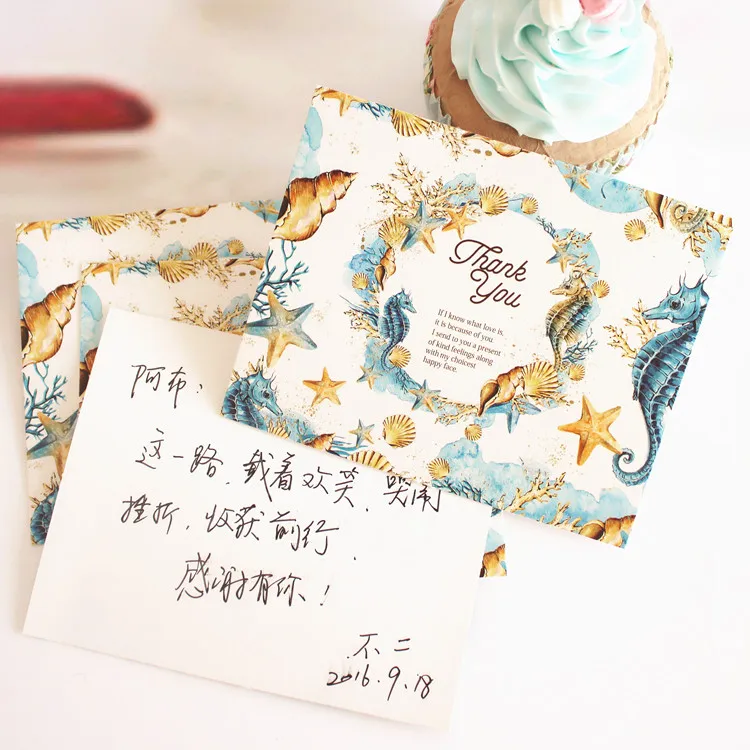 Thank
You
If I know what love is,
it is because of you.
I send to you a present
of kind feelings along
with my choicest
happy face.
阿布:
这一路,载着欢笑、哭闹
挫折,收获前行.
感谢有你!
不二
2016.9.18